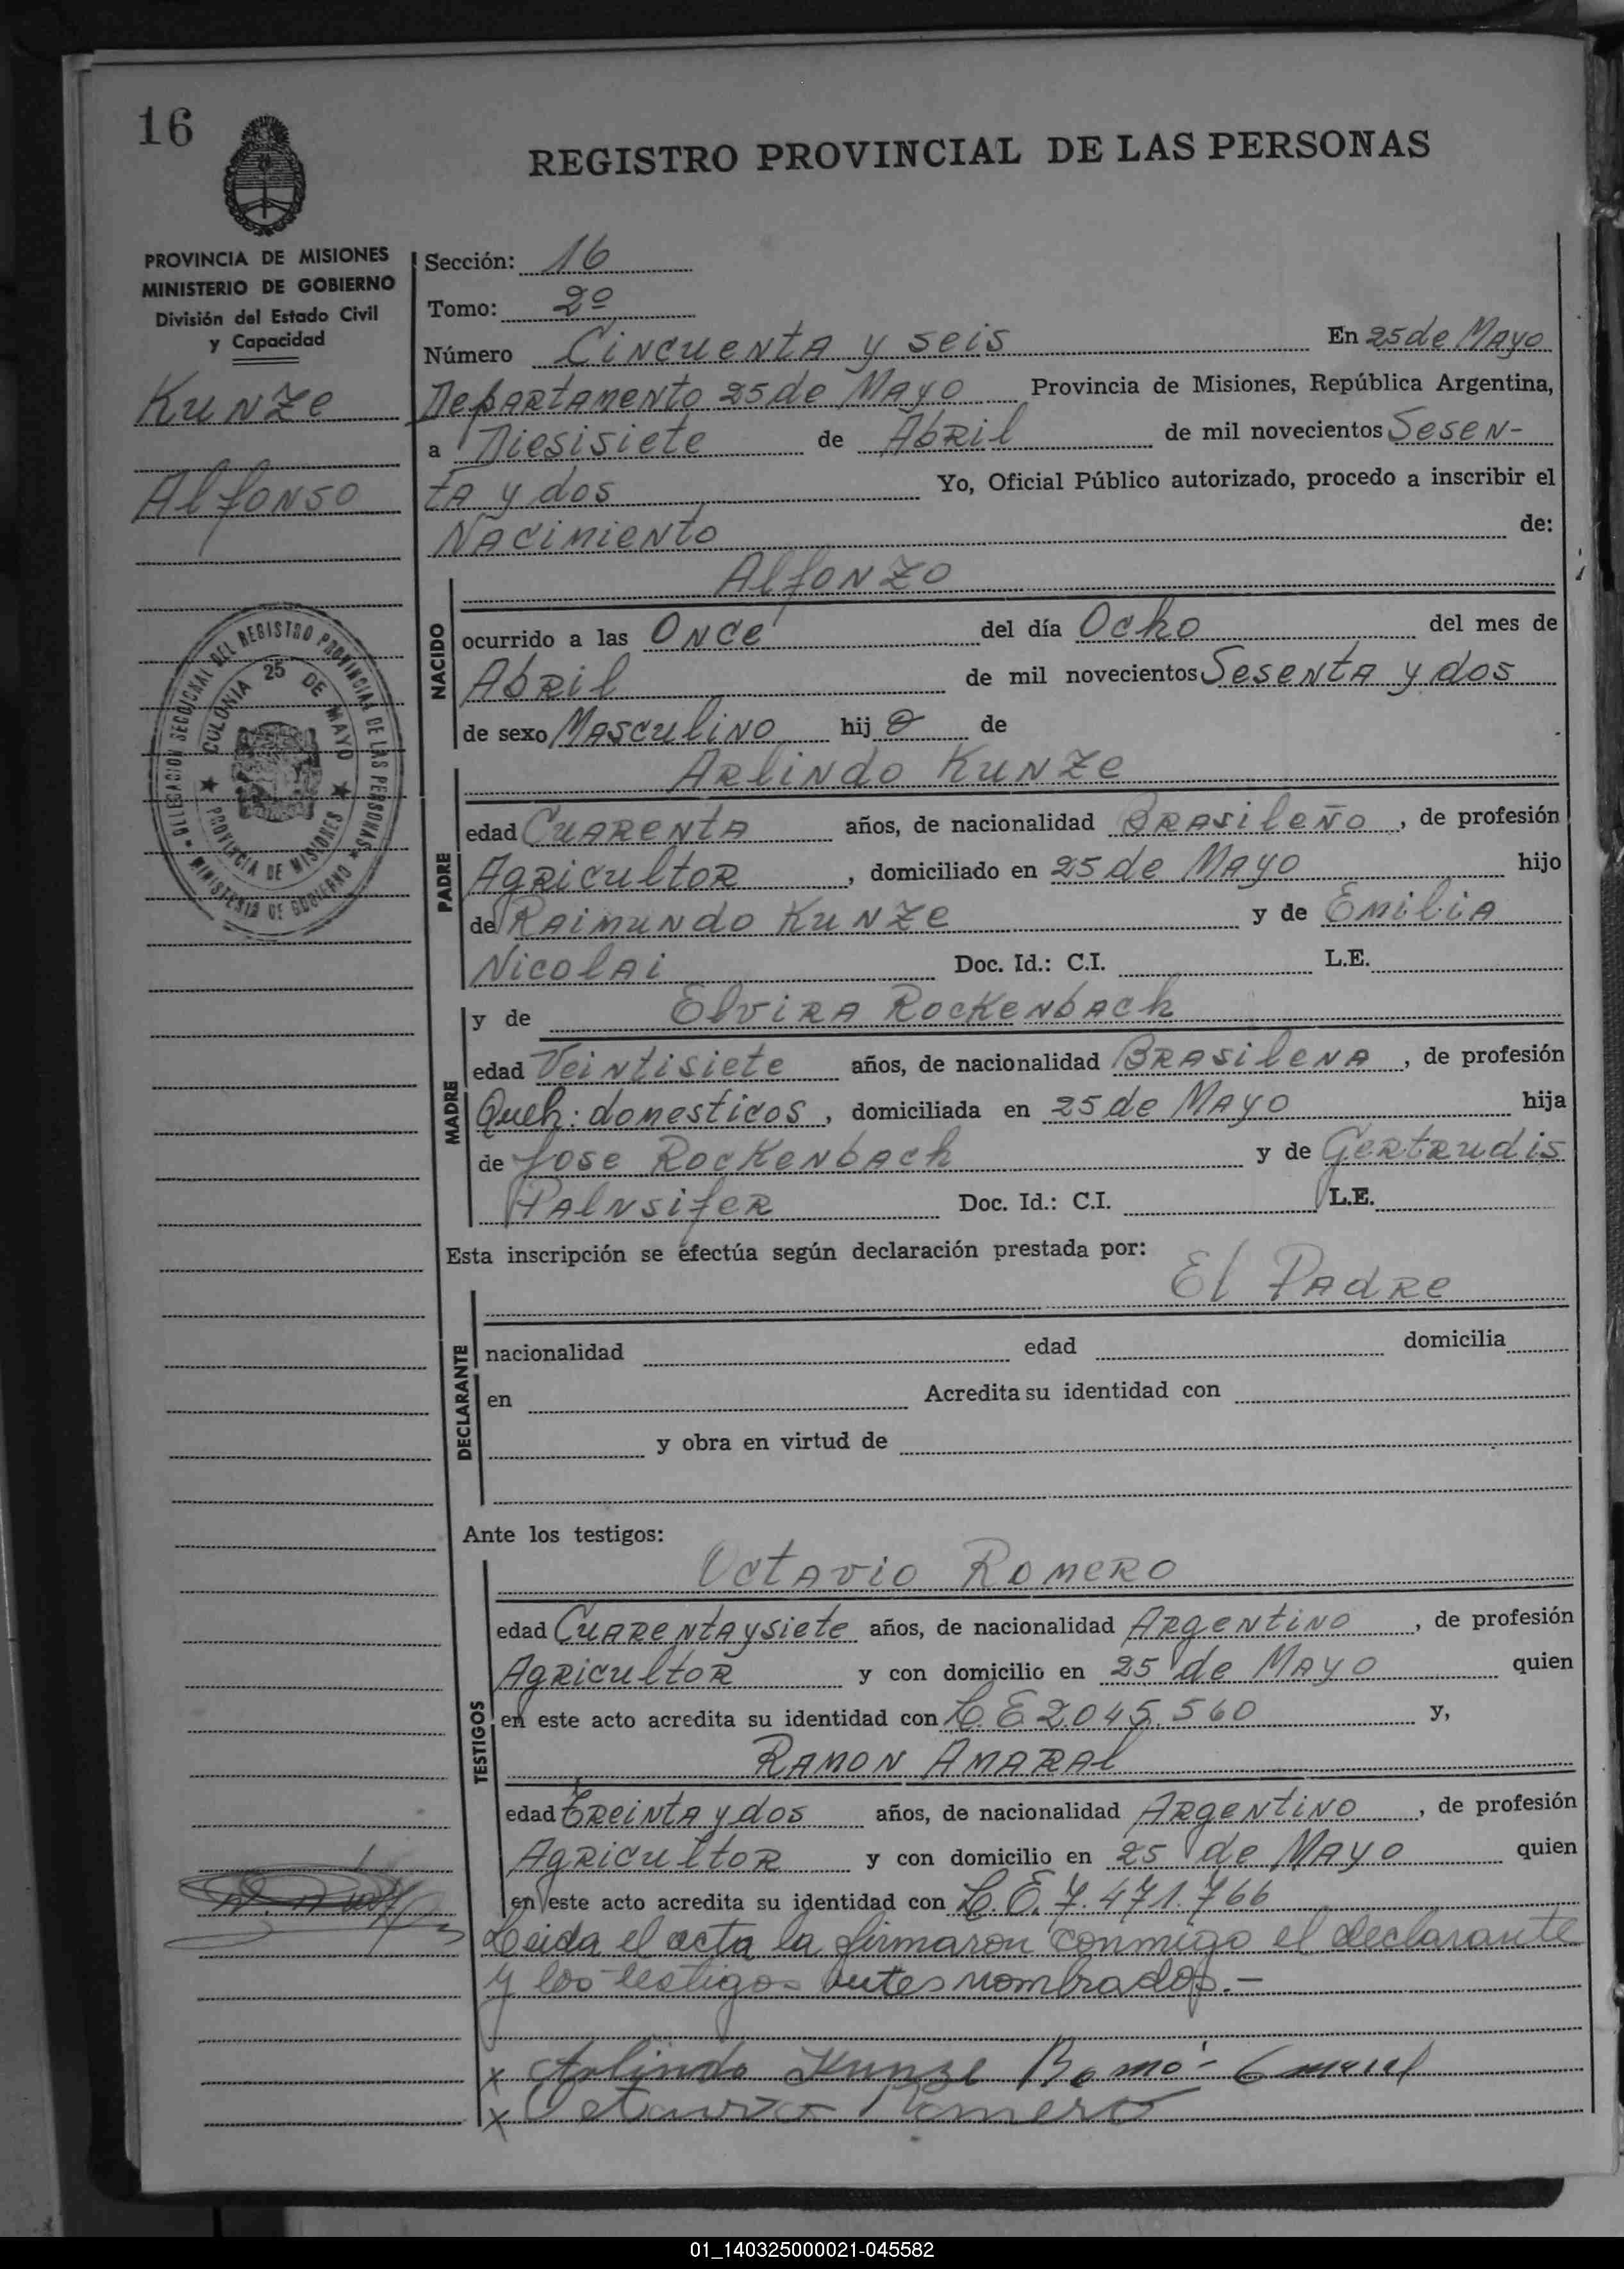 16
REGISTRO PROVINCIAL DE LAS PERSONAS
PROVINCIA DE MISIONES
MINISTERIO DE GOBIERNO
División del Estado Civil
y Capacidad
Kunze
Alfonso
DELEGACION SECCIONAL DEL REGISTRO PROVINCIAL DE LAS PERSONAS
★ MINISTERIO DE GOBIERNO ★
COLONIA 25 DE MAYO
★ PROVINCIA DE MISIONES ★
Sección: 16
Tomo: 2º
Número Cincuenta y seis En 25 de Mayo
Departamento 25 de Mayo Provincia de Misiones, República Argentina,
a Diesisiete de Abril de mil novecientos Sesen-
ta y dos Yo, Oficial Público autorizado, procedo a inscribir el
Nacimiento de:
NACIDO
Alfonzo
ocurrido a las Once del día Ocho del mes de
Abril de mil novecientos Sesenta y dos
de sexo Masculino hij o de
PADRE
Arlindo Kunze
edad Cuarenta años, de nacionalidad Brasileño, de profesión
Agricultor, domiciliado en 25 de Mayo hijo
de Raimundo Kunze y de Emilia
Nicolai Doc. Id.: C.I. L.E.
MADRE
y de Elvira Rockenbach
edad Veintisiete años, de nacionalidad Brasilena, de profesión
Queh: domesticos, domiciliada en 25 de Mayo hija
de Jose Rockenbach y de Gertrudis
Palnsifer Doc. Id.: C.I. L.E.
Esta inscripción se efectúa según declaración prestada por:
El Padre
DECLARANTE
nacionalidad edad domicilia
en Acredita su identidad con
y obra en virtud de
Ante los testigos:
TESTIGOS
Octavio Romero
edad Cuarenta y siete años, de nacionalidad Argentino, de profesión
Agricultor y con domicilio en 25 de Mayo quien
en este acto acredita su identidad con L.E 2.045.560 y,
Ramon Amaral
edad treinta y dos años, de nacionalidad Argentino, de profesión
Agricultor y con domicilio en 25 de Mayo quien
en este acto acredita su identidad con L.E. 7.471.766
Leida el acta la firmaron conmigo el declarante
y los testigos antes nombrados.-
x Arlindo Kunze
x Octavio Romero
01_140325000021-045582